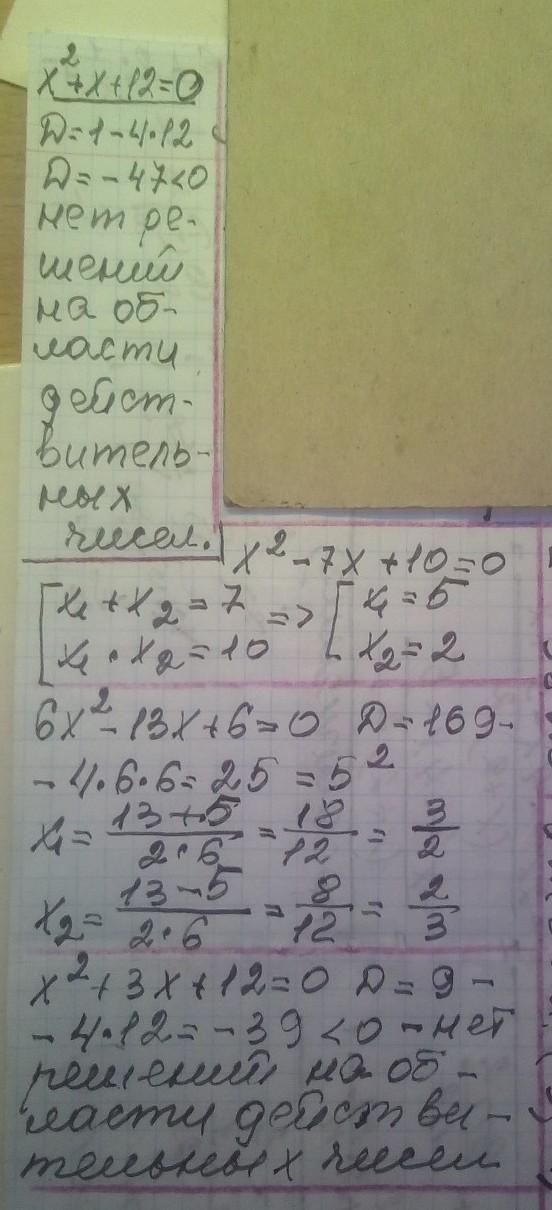 x²+x+12=0
D=1-4·12
D=-47<0
нет ре-
шений
на об-
ласти
дейст-
витель-
ных
чисел.
x²-7x+10=0
[x₁+x₂=7 => [x₁=5
x₁·x₂=10 x₂=2
6x²-13x+6=0 D=169-
-4·6·6=25=5²
x₁=(13+5)/(2·6)=18/12=3/2
x₂=(13-5)/(2·6)=8/12=2/3
x²+3x+12=0 D=9-
-4·12=-39<0-нет
решений на об-
ласти действи-
тельных чисел